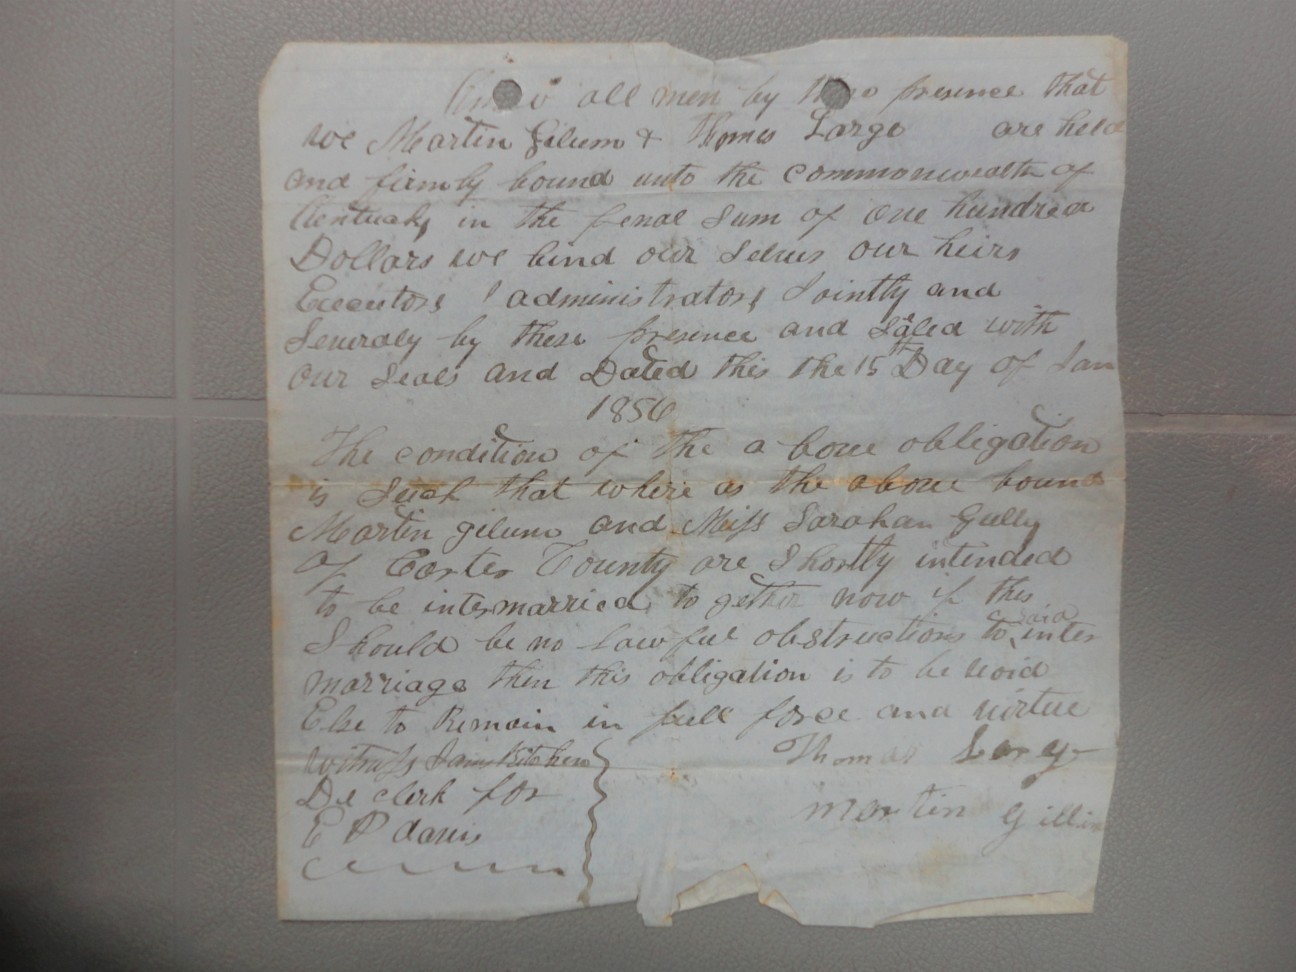 Know all men by these presence that
we Martin Gilum & Thomas Large are held
and firmly bound unto the commonwealth of
Kentucky in the penal sum of one hundred
Dollars we bind our selves our heirs
Executors administrators Jointly and
Severaly by these presence and Sealed with
our seals and Dated this the 15th Day of Jan
1856
The condition of the a bove obligation
is such that where as the above bound
Martin gilum and Miss Sarahan Gully
of Carter County are Shortly intended
to be intermarried to gether now if this
Should be no lawful obstructions to said inter
marriage then this obligation is to be void
Else to Remain in full force and virtue
witness James Kitchen Thomas Large
De clerk for
E P davis Martin Gillim